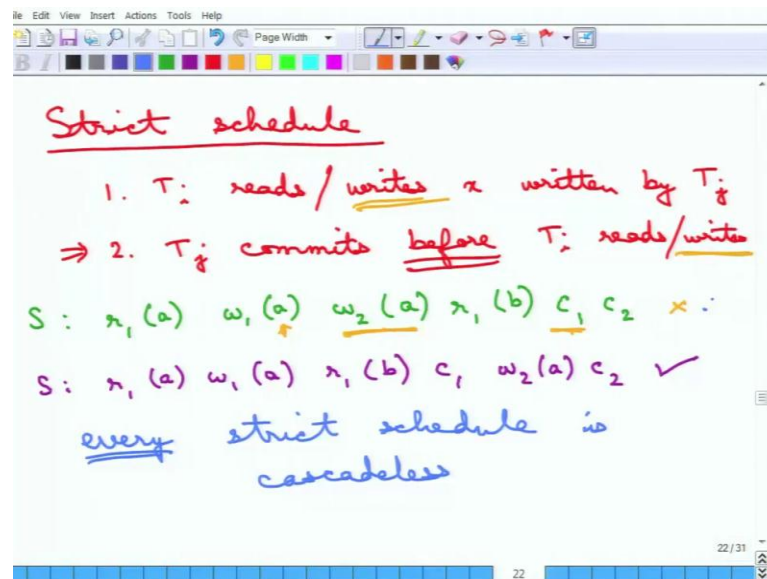 ile Edit View Insert Actions Tools Help
Page Width
B I
Strict schedule
1. Ti reads/writes x written by Tj
⇒ 2. Tj commits before Ti reads/writes
S: r1(a) w1(a) w2(a) r1(b) c1 c2 ×
S: r1(a) w1(a) r1(b) c1 w2(a) c2 ✓
every strict schedule is
cascadeless
22/31
22